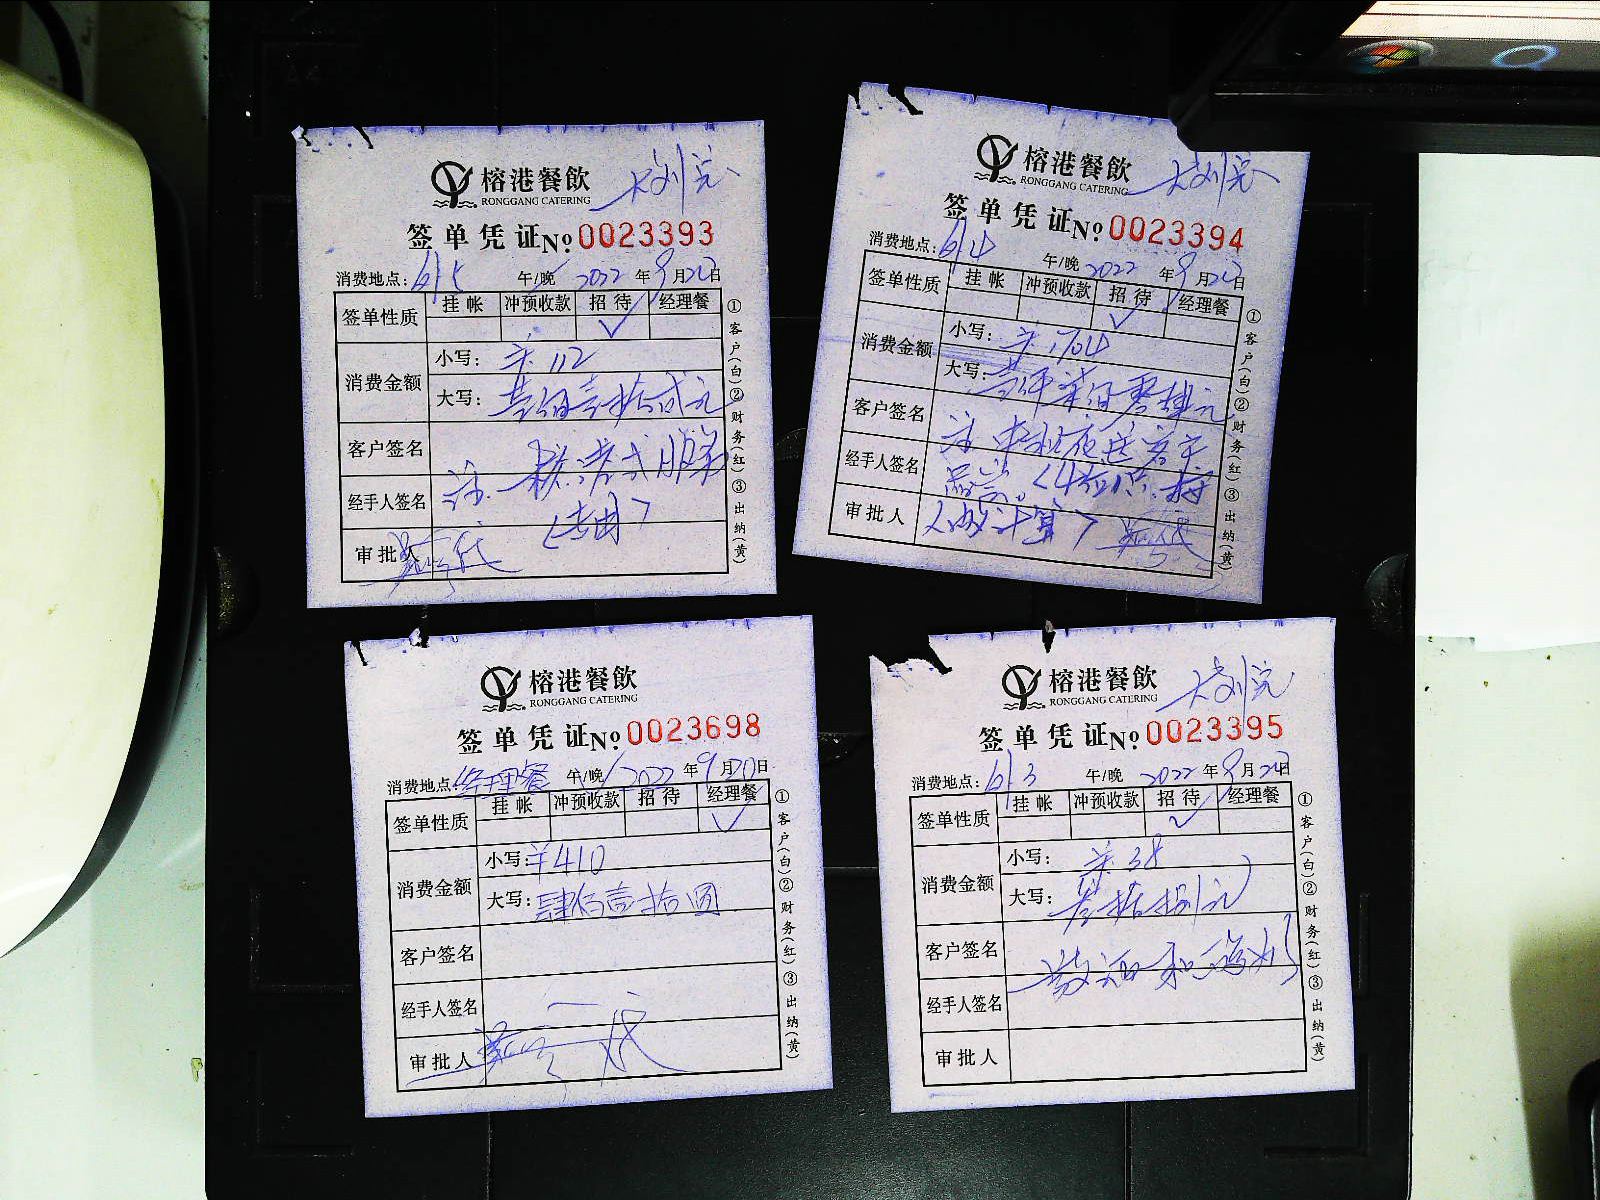 榕港餐飲
RONGGANG CATERING
签单凭证 No. 0023393
消费地点: 午/晚 2022年9月20日
签单性质 挂帐 冲预收款 招待 经理餐
✓
消费金额
小写: ¥112
大写: 壹佰壹拾贰元
客户签名
经手人签名
审批人
①客户(白)②财务(红)③出纳(黄)
榕港餐飲
RONGGANG CATERING
签单凭证 No. 0023394
消费地点: 午/晚 2022年9月20日
签单性质 挂帐 冲预收款 招待 经理餐
✓
消费金额
小写: ¥1704
大写: 壹仟柒佰零肆元
客户签名
经手人签名
审批人
①客户(白)②财务(红)③出纳(黄)
榕港餐飲
RONGGANG CATERING
签单凭证 No. 0023698
消费地点: 经理餐 午/晚 2022年9月20日
签单性质 挂帐 冲预收款 招待 经理餐
✓
消费金额
小写: ¥410
大写: 肆佰壹拾圆
客户签名
经手人签名
审批人
①客户(白)②财务(红)③出纳(黄)
榕港餐飲
RONGGANG CATERING
签单凭证 No. 0023395
消费地点: 午/晚 2022年9月20日
签单性质 挂帐 冲预收款 招待 经理餐
✓
消费金额
小写: ¥38
大写: 叁拾捌元
客户签名
经手人签名
审批人
①客户(白)②财务(红)③出纳(黄)